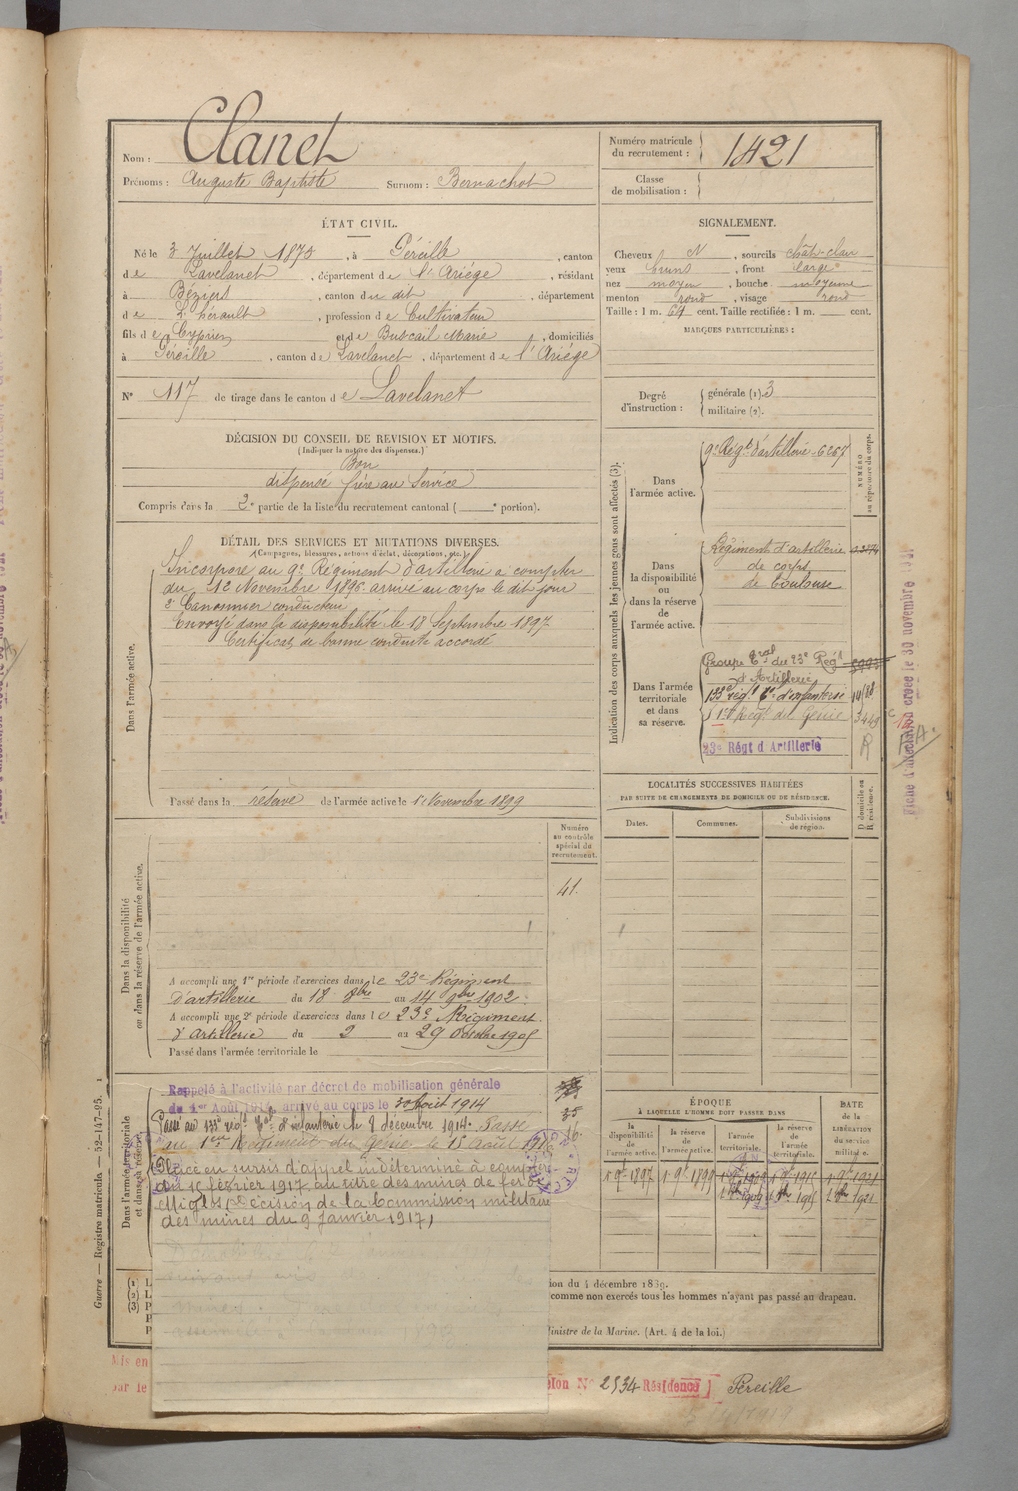 Nom : Clanet
Prénoms : Auguste Baptiste Surnom : Bernachot
Numéro matricule
du recrutement : 1421
Classe
de mobilisation :
ÉTAT CIVIL.
Né le 3 Juillet 1875, à Péreille, canton
de Lavelanet, département de l'Ariège, résidant
à Béziers, canton du dit, département
de L'hérault, profession de Cultivateur
fils de Cyprien et de Buscail Marie, domiciliés
à Péreille, canton de Lavelanet, département de l'Ariège
N° 117 de tirage dans le canton de Lavelanet
SIGNALEMENT.
Cheveux N, sourcils chât-clair
yeux bruns, front large
nez moyen, bouche moyenne
menton rond, visage rond
Taille : 1 m. 64 cent. Taille rectifiée : 1 m. cent.
MARQUES PARTICULIÈRES :
Degré
d'instruction :
générale (1). 3
militaire (2).
DÉCISION DU CONSEIL DE REVISION ET MOTIFS.
(Indiquer la nature des dispenses.)
Bon
dispensé frère au Service
Compris dans la 2e partie de la liste du recrutement cantonal ( e portion).
DÉTAIL DES SERVICES ET MUTATIONS DIVERSES.
(Campagnes, blessures, actions d'éclat, décorations, etc.)
Dans l'armée active.
Incorporé au 9e Régiment d'artillerie à compter
du 12 Novembre 1896 arrivé au corps le dit jour
2e Canonnier conducteur
Envoyé dans la disponibilité le 18 Septembre 1897
Certificat de bonne conduite accordé
Passé dans la réserve de l'armée active le 1er Novembre 1899
Indication des corps auxquels les jeunes gens sont affectés (3).
NUMÉRO
au répertoire du corps.
Dans
l'armée active.
9e Régt d'artillerie 6267
Dans
la disponibilité
ou
dans la réserve
de
l'armée active.
Régiment d'artillerie
de corps
de Toulouse
Dans l'armée
territoriale
et dans
sa réserve.
Groupe tral du 23e Régt
d'Artillerie
133e régt tal d'infanterie
1er Régt du Génie 3449
23e Régt d'Artillerie R
Fiche d'affectation créée le 30 novembre
LOCALITÉS SUCCESSIVES HABITÉES
PAR SUITE DE CHANGEMENTS DE DOMICILE OU DE RÉSIDENCE.
Dates.
Communes.
Subdivisions
de région.
D domicile ou
R résidence.
Numéro
au contrôle
spécial du
recrutement.
41.
Dans la disponibilité
ou dans la réserve de l'armée active.
A accompli une 1re période d'exercices dans le 23e Régiment
d'artillerie du 18 8bre au 14 9bre 1902.
A accompli une 2e période d'exercices dans le 23e Régiment
d'artillerie du 2 au 29 Octobre 1905
Passé dans l'armée territoriale le
Dans l'armée territoriale
et dans sa réserve.
Rappelé à l'activité par décret de mobilisation générale
du 1er Août 1914, arrivé au corps le 30 août 1914
Passé au 133e régt tal d'infanterie le 8 décembre 1914. Passé
au 1er Régiment du Génie le 15 août 1916
Placé en sursis d'appel indéterminé à compter
du 10 février 1917 au titre des mines de fer de
Miglos (Décision de la Commission militaire
des mines du 9 Janvier 1917)
35
16
ÉPOQUE
À LAQUELLE L'HOMME DOIT PASSER DANS
la
disponibilité
de
l'armée active.
la
réserve
de
l'armée active.
l'armée
territoriale.
la
réserve
de
l'armée
territoriale.
DATE
de la
LIBÉRATION
du service
militaire.
Guerre — Registre matricule — 52-147-95.
(1) L
(2) L
(3) P
ion du 4 décembre 1889.
comme non exercés tous les hommes n'ayant pas passé au drapeau.
Ministre de la Marine. (Art. 4 de la loi.)
Mis en
par le
sion N° 2534 Résidence Péreille